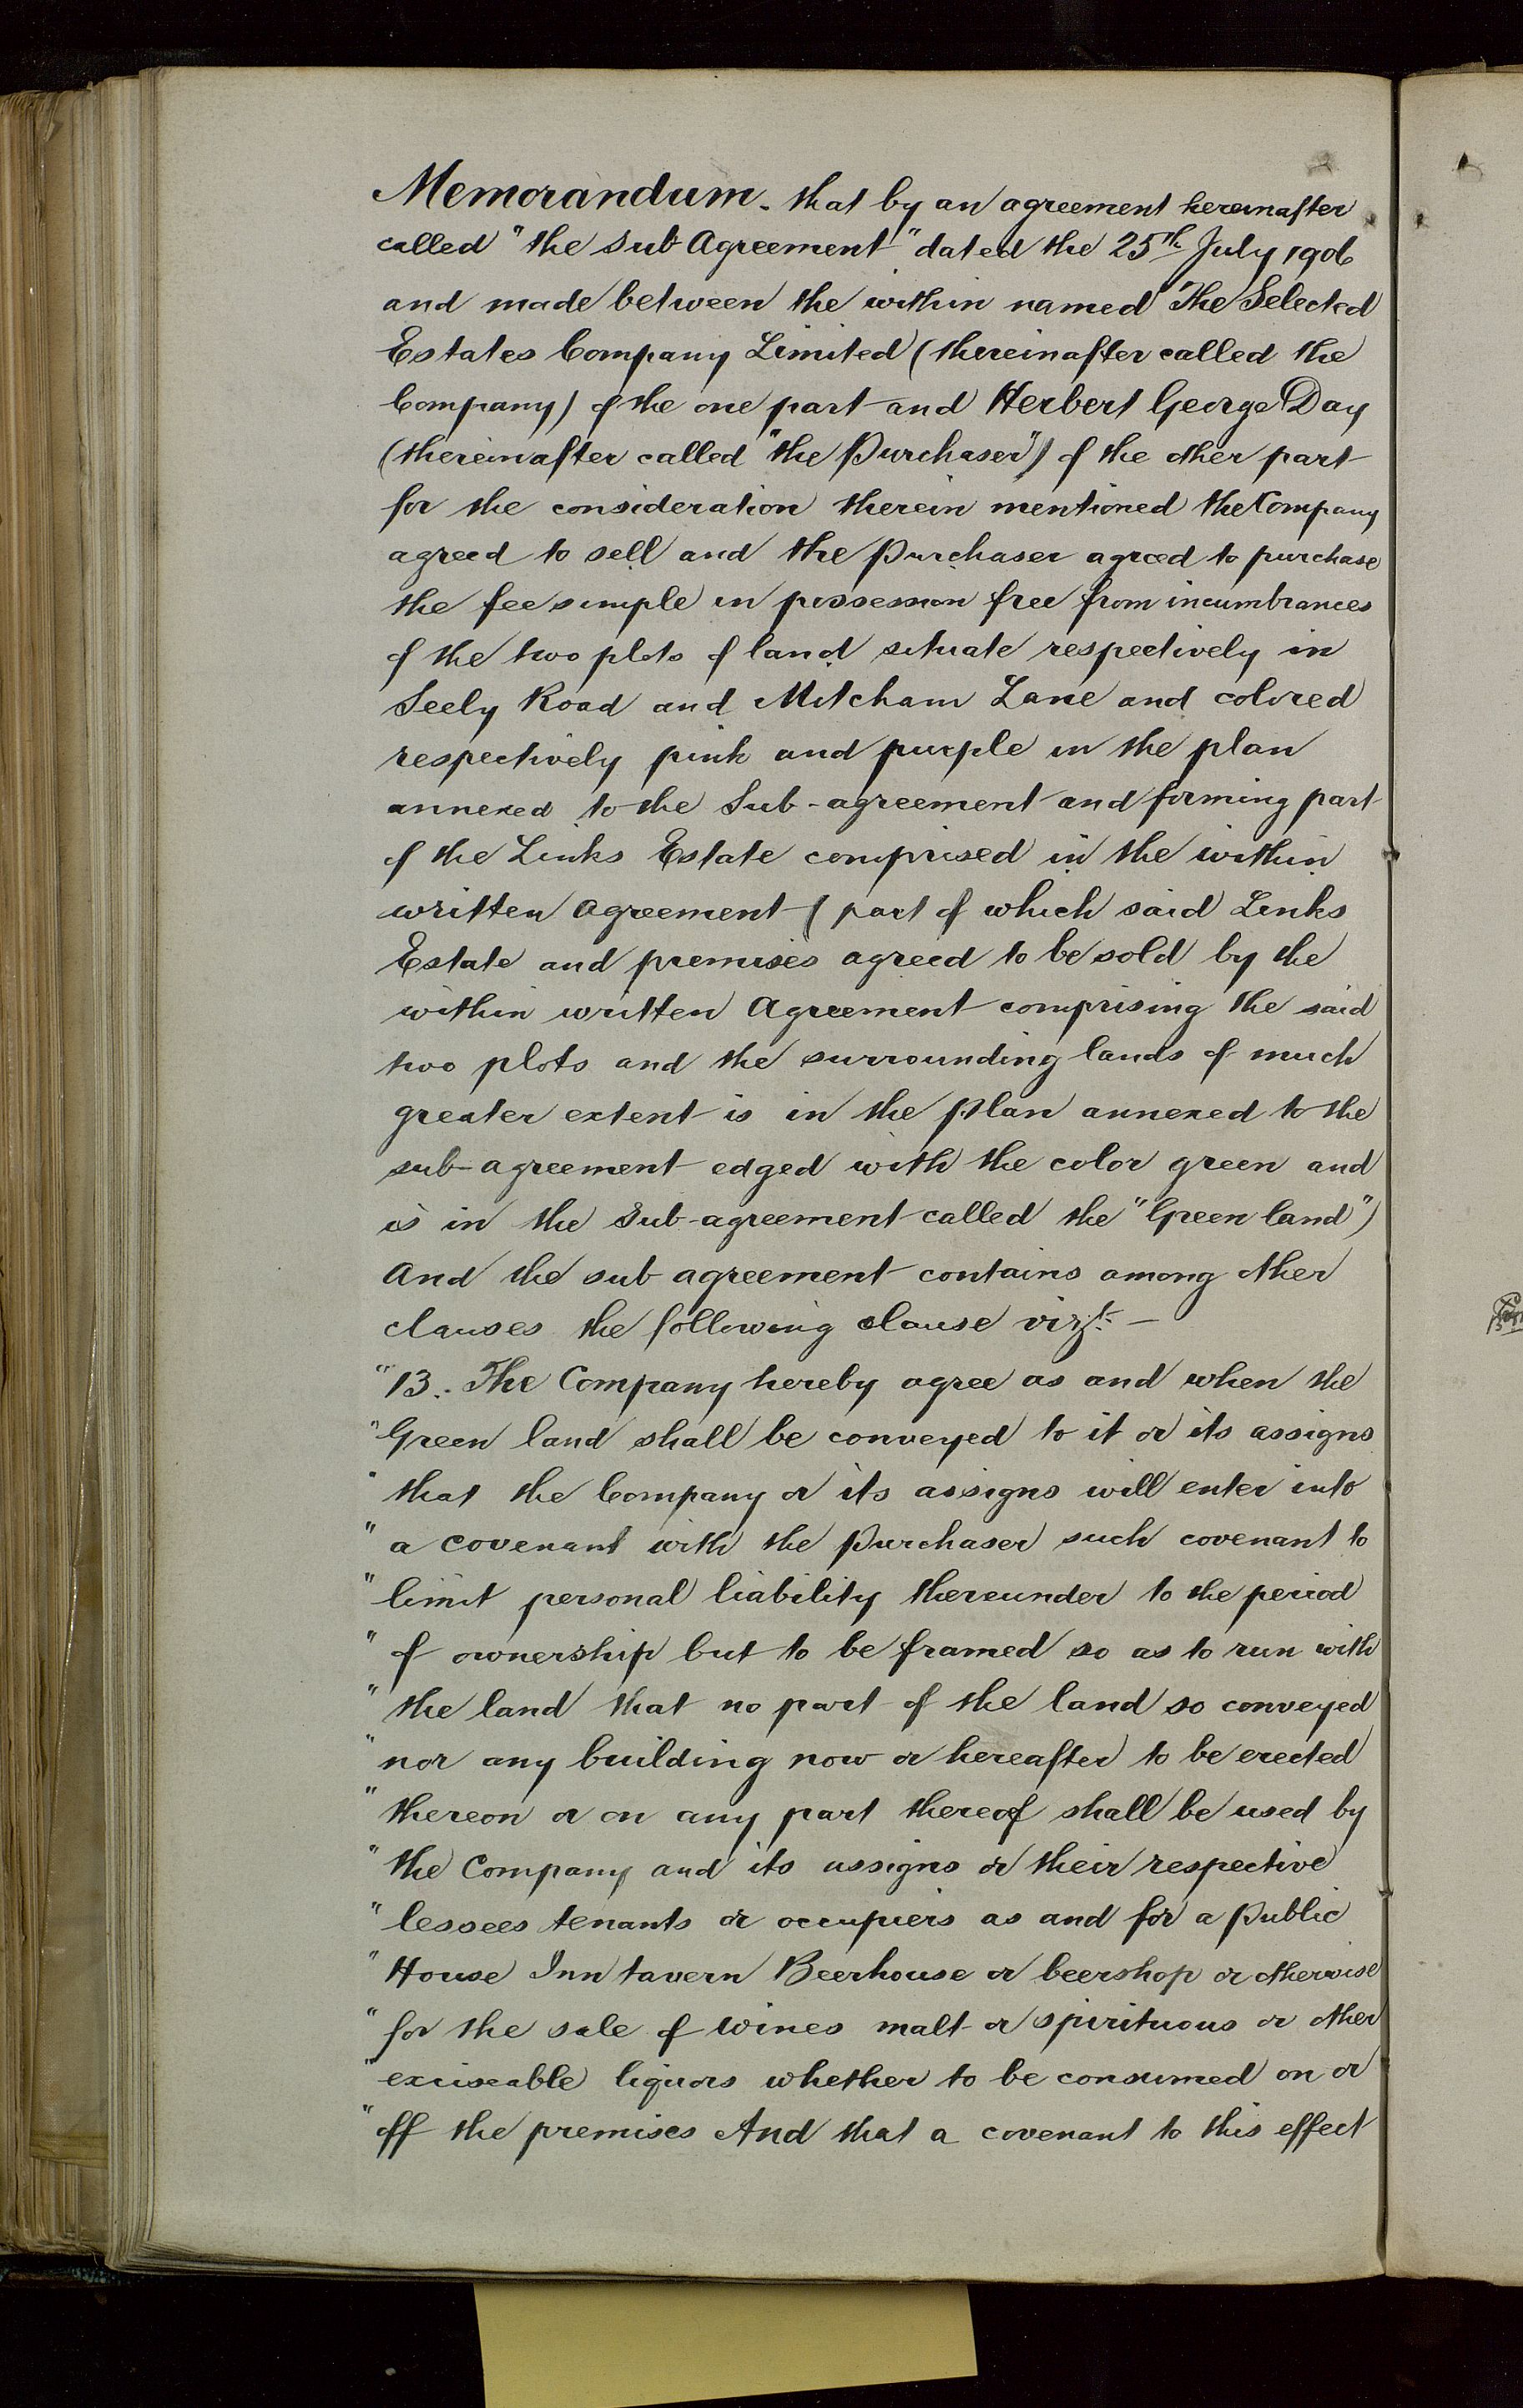 Memorandum. that by an agreement hereinafter
called "the sub Agreement" dated the 25th July 1906
and made between the within named The Selected
Estates Company Limited (thereinafter called the
Company) of the one part and Herbert George Day
(thereinafter called "the Purchaser") of the other part
for the consideration therein mentioned the Company
agreed to sell and the Purchaser agreed to purchase
the fee simple in possession free from incumbrances
of the two plots of land situate respectively in
Seely Road and Mitcham Lane and colored
respectively pink and purple in the plan
annexed to the Sub-agreement and forming part
of the Links Estate comprised in the within
written agreement (part of which said Links
Estate and premises agreed to be sold by the
within written Agreement comprising the said
two plots and the surrounding lands of much
greater extent is in the plan annexed to the
sub-agreement edged with the color green and
is in the Sub-agreement called the "Green land")
And the sub agreement contains among other
clauses the following clause vizt. —
"13. The Company hereby agree as and when the
"Green land shall be conveyed to it or its assigns
"that the Company or its assigns will enter into
"a covenant with the Purchaser such covenant to
"limit personal liability thereunder to the period
"of ownership but to be framed so as to run with
"the land that no part of the land so conveyed
"nor any building now or hereafter to be erected
"thereon or on any part thereof shall be used by
"the Company and its assigns or their respective
"lessees tenants or occupiers as and for a Public
"House Inn tavern Beerhouse or beershop or otherwise
"for the sale of wines malt or spirituous or other
"exciseable liquors whether to be consumed on or
"off the premises And that a covenant to this effect